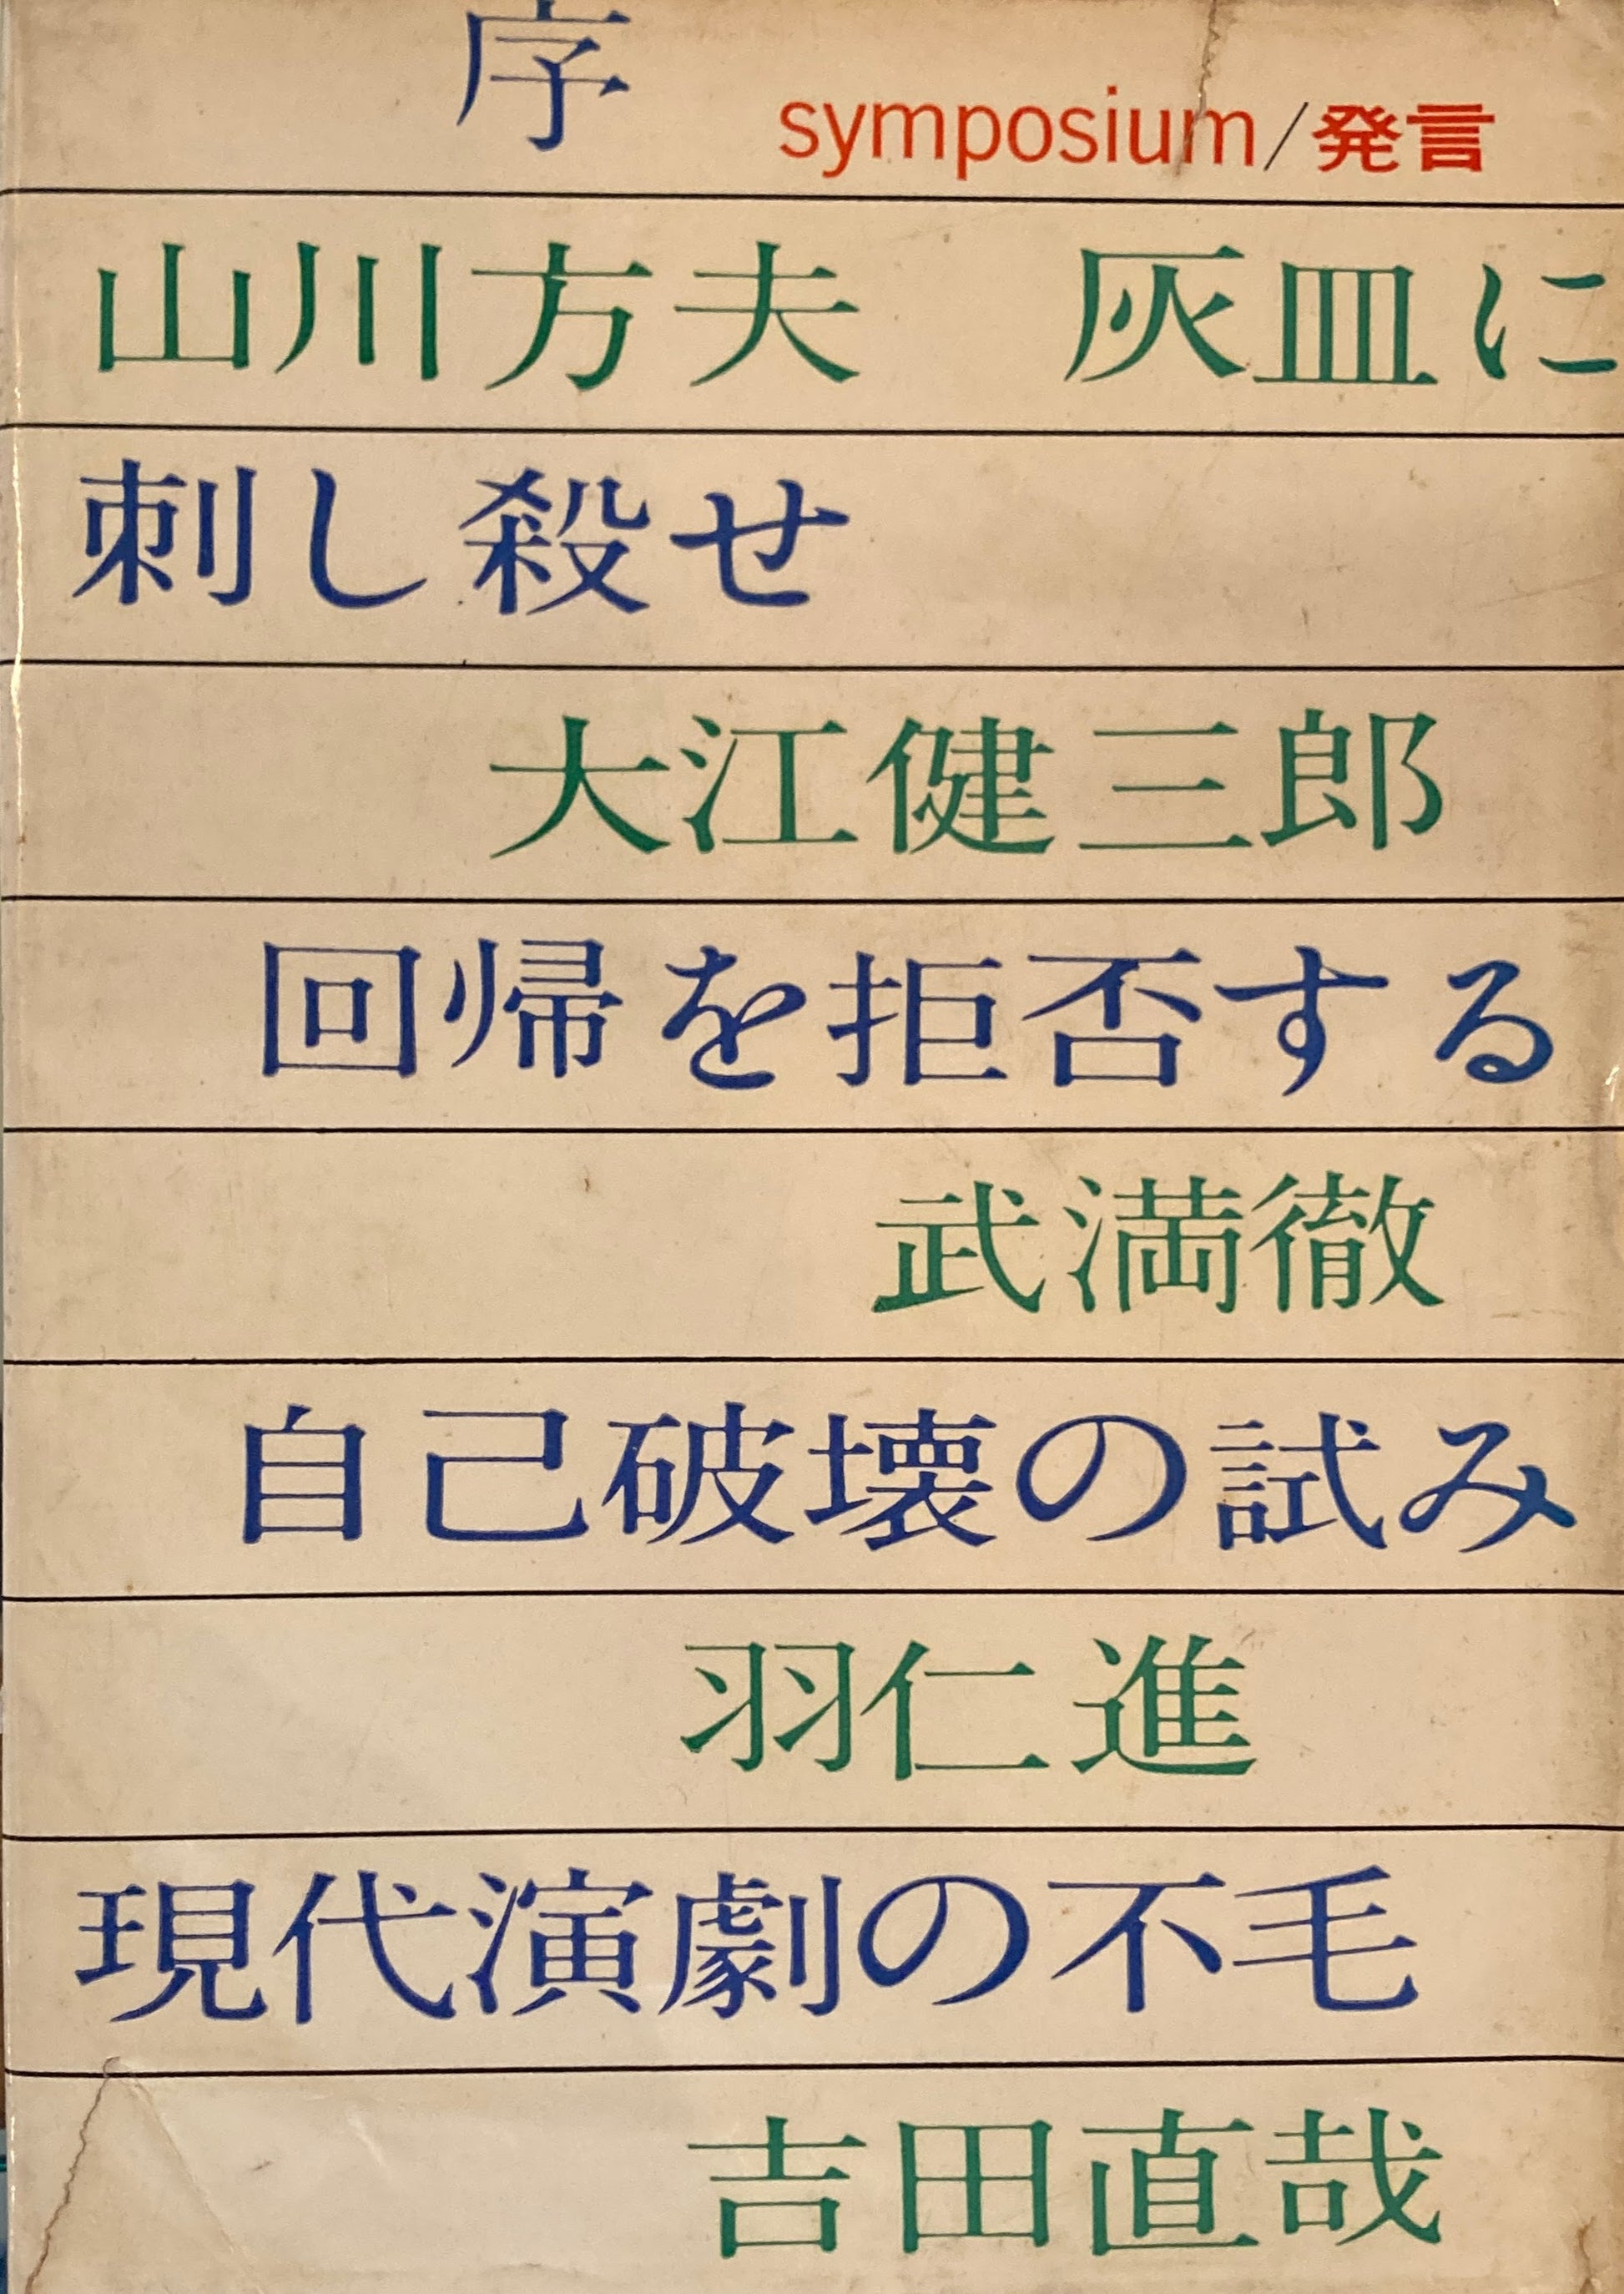 序
symposium/発言
山川方夫 灰皿に
刺し殺せ
大江健三郎
回帰を拒否する
武満徹
自己破壊の試み
羽仁進
現代演劇の不毛
吉田直哉